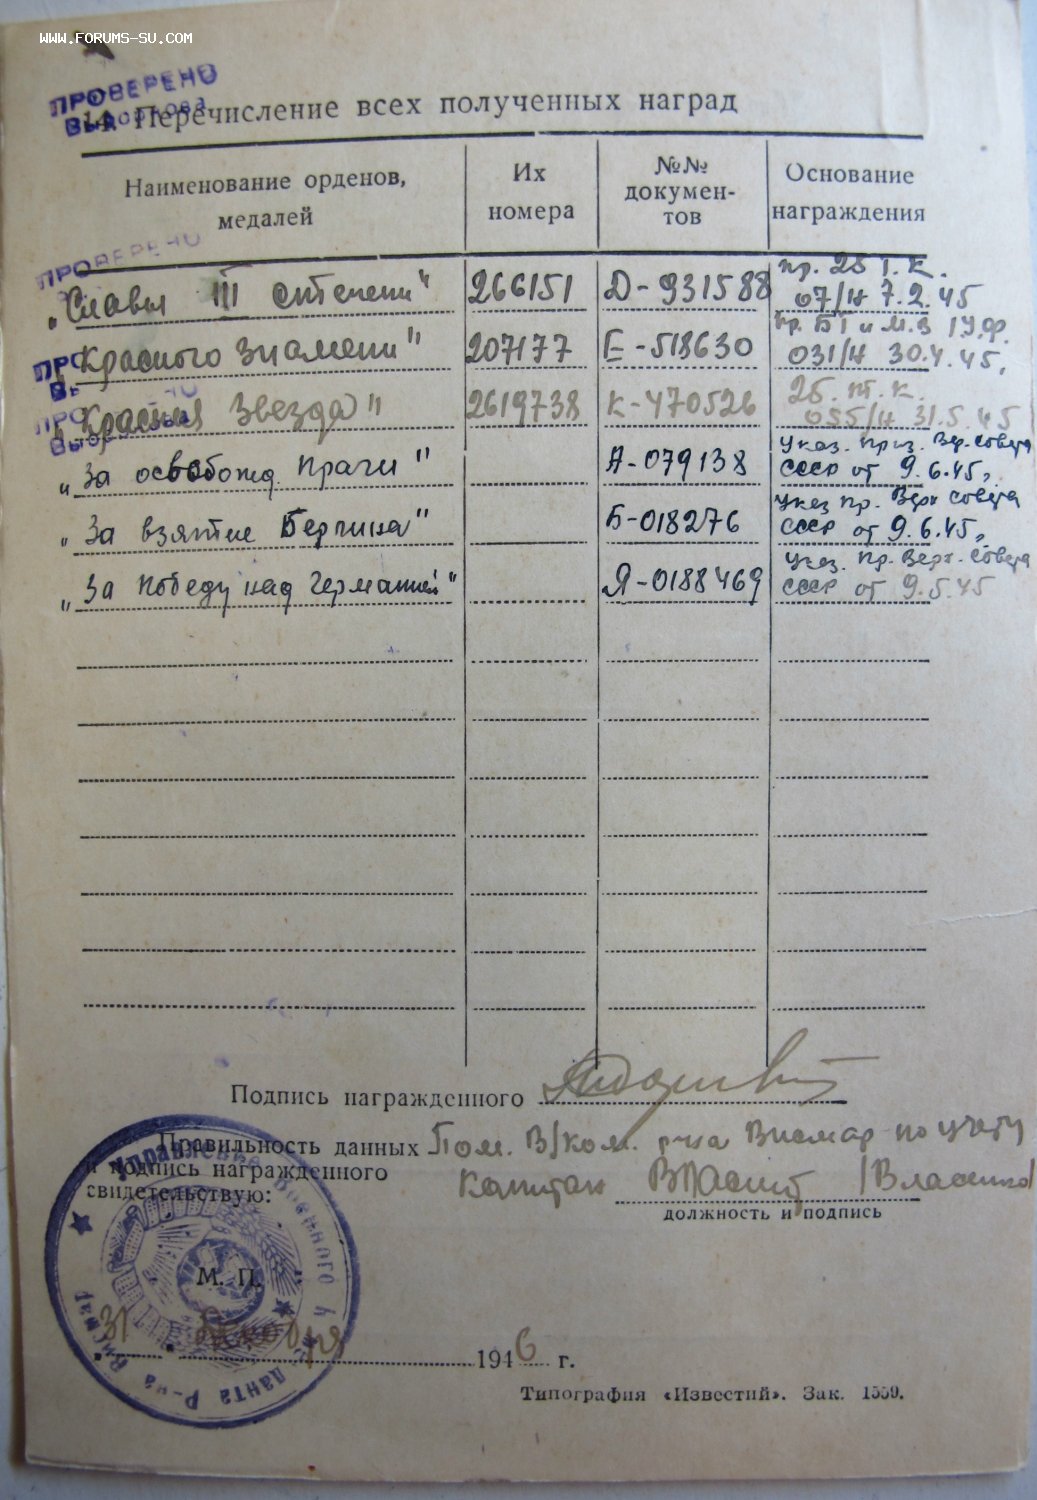 WWW.FORUMS-SU.COM
ПРОВЕРЕНО
14. Перечисление всех полученных наград
Наименование орденов, медалей
Их номера
№№ документов
Основание награждения
ПРОВЕРЕНО
„Славы III степени" 266151 Д-931588 пр. 25 Т.К. 07/н 7.2.45
„Красного Знамени" 207177 Е-518630 пр. БТ и М.В 1 У.Ф. 031/н 30.4.45,
„Красная Звезда" 2619738 К-470526 25. т.К. 055/н 31.5.45
„За освобожд. Праги" А-079138 Указ. През. Вер. Совета СССР от 9.6.45,
„За взятие Берлина" Б-018276 Указ Пр. Верх Совета СССР от 9.6.45,
„За победу над Германией" Я-0188469 Указ. Пр. Верх. Совета СССР от 9.5.45
Подпись награжденного
Правильность данных Пом. В/ком. р-на Висмар по учету
и подпись награжденного
свидетельствую: Капитан /Власенко/
должность и подпись
Управление Военного Коменданта Р-на Висмар
М. П.
31 1946 г.
Типография «Известий». Зак. 1559.